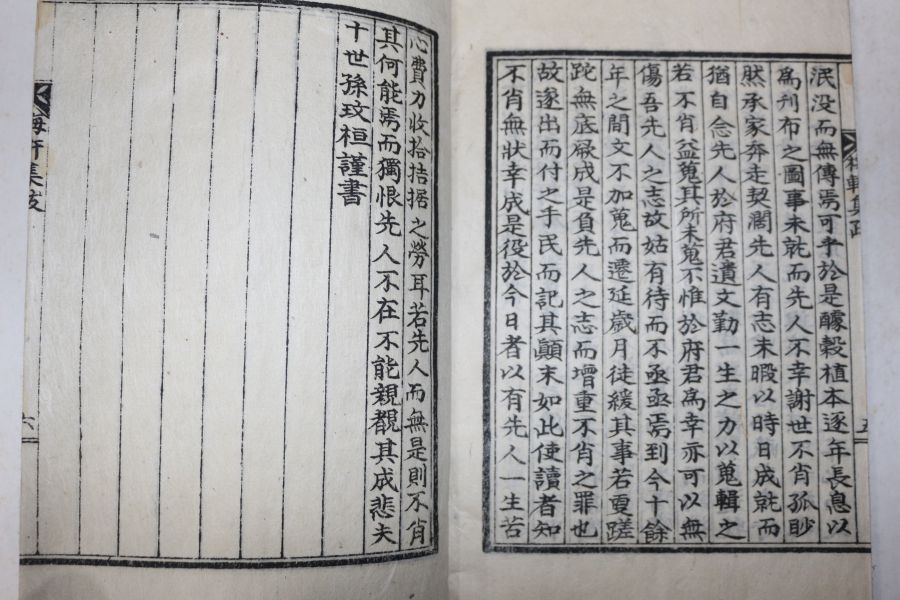 泯没而無傳焉可乎於是醵穀植本逐年長息以
爲刊布之圖事未就而先人不幸謝世不肖孤眇
然承家奔走契濶先人有志未暇以時日成就而
猶自念先人於府君遺文勤一生之力以蒐輯之
若不肖益蒐其所未蒐不惟於府君爲幸亦可以無
傷吾先人之志故姑有待而不亟亟焉到今十餘
年之間文不加蒐而遷延歲月徒緩其事若更蹉
跎無底欲成是負先人之志而增重不肖之罪也
故遂出而付之手民而記其顛末如此使讀者知
不肖無狀幸成是役於今日者以有先人一生苦
心費力收拾拮据之勞耳若先人而無是則不肖
其何能焉而獨恨先人不在不能親覩其成悲夫
十世孫玟桓謹書
軒集跋
六